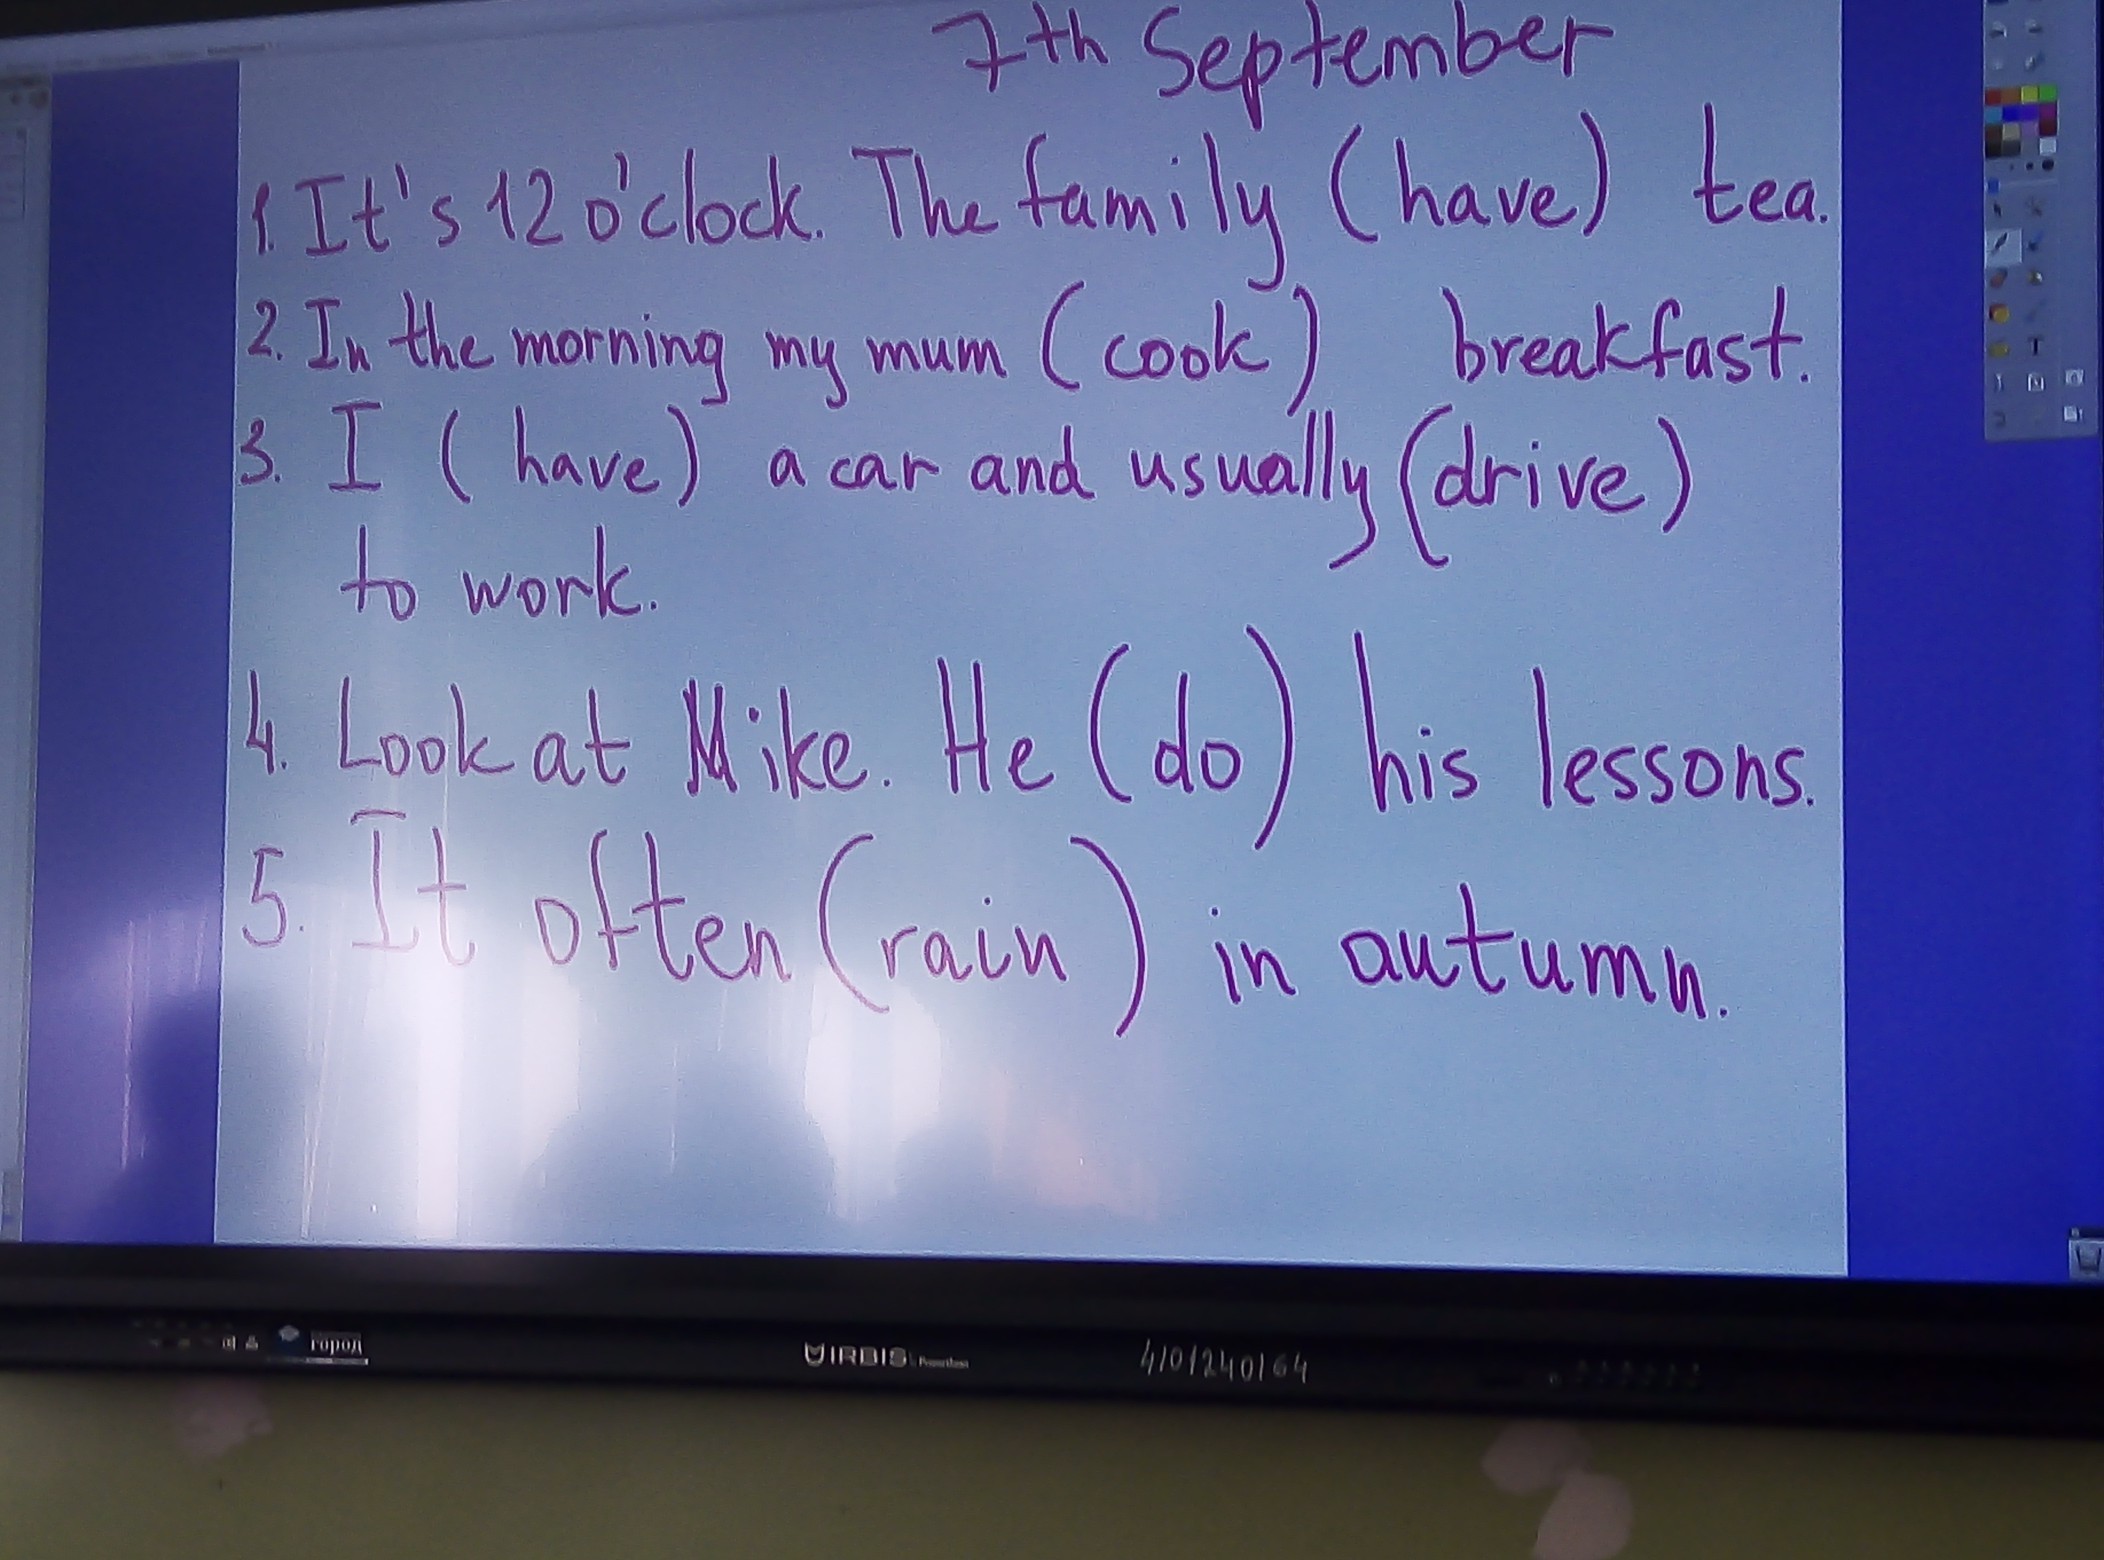 7th September
1. It's 12 o'clock. The family (have) tea.
2. In the morning my mum (cook) breakfast.
3. I (have) a car and usually (drive)
to work.
4. Look at Mike. He (do) his lessons.
5. It often (rain) in autumn.
город
IRBIS
4101240164